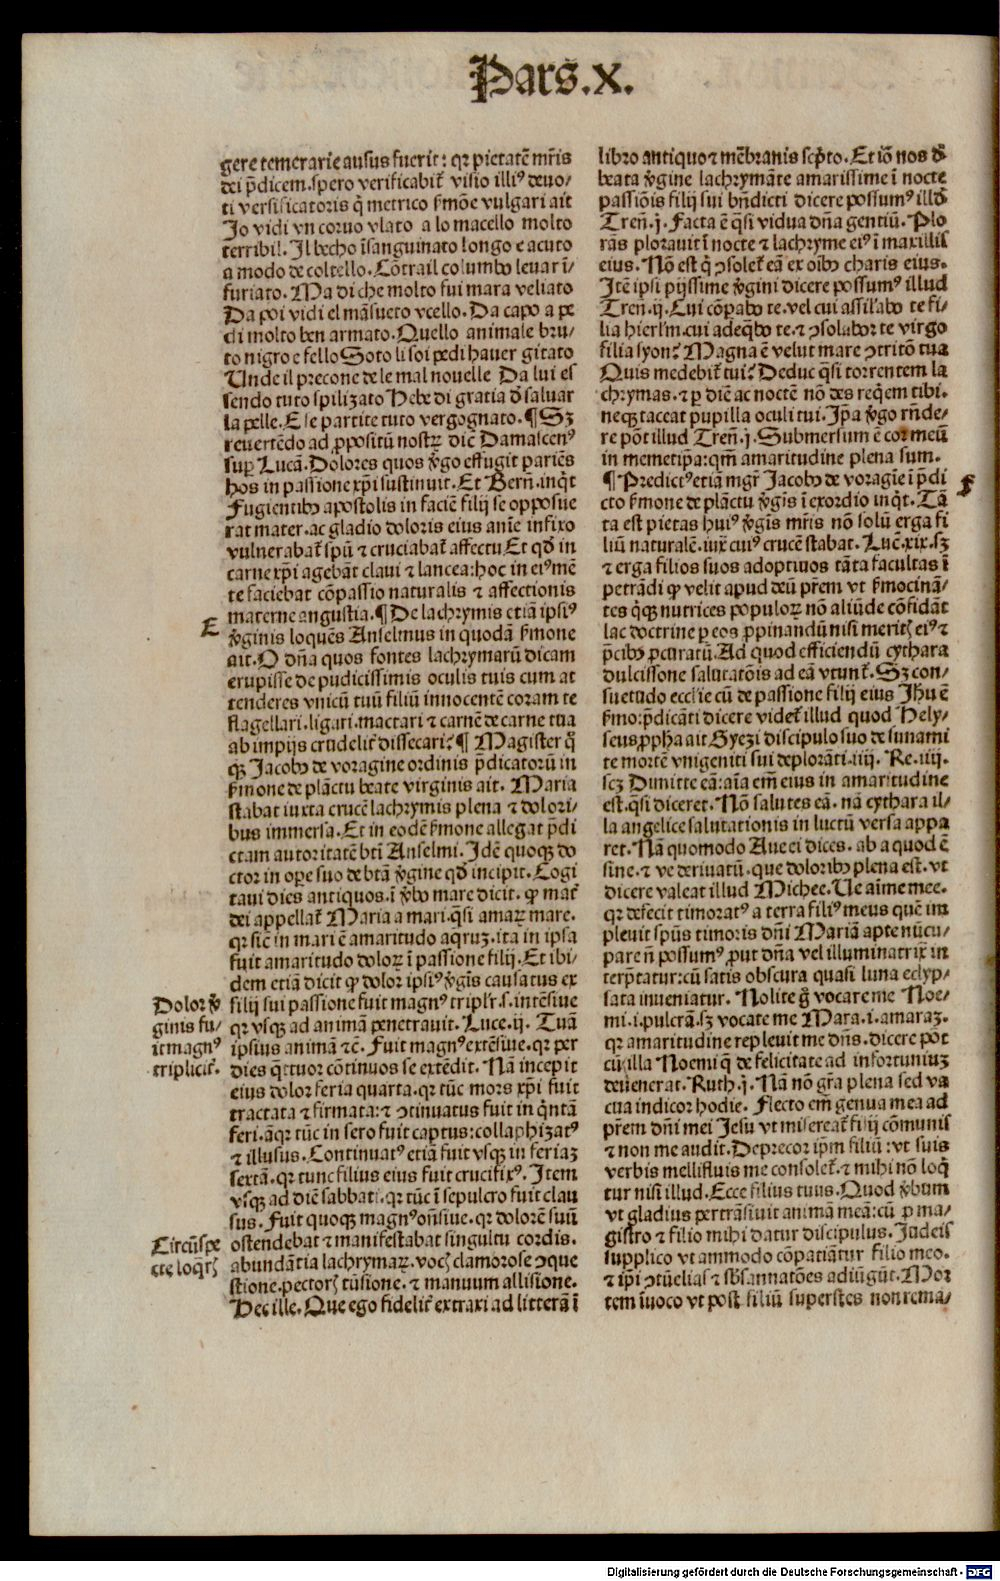 Pars.X.
gere temerarie ausus fuerit: qꝛ pietatē mr̄is
dei p̄dicem. spero verificabit̄ visio illiꝰ deuo/
ti versificatoris q̄ metrico s̄mōe vulgari ait
Jo vidi vn coruo vlato a lo macello molto
terribil. Jl becho īsanguinato longo e acuto
a modo de coltello. Cōtra il columbo leuar ī/
furiato. Ma di che molto fui mara veliato
Da poi vidi el māsueto vcello. Da capo a pe
di molto ben armato. Quello animale bru/
to nigro e fello Soto li soi pedi hauer gitato
Unde il precone de le mal nouelle Da lui es
sendo tuto spilizato Hebe di gratia d̄ saluar
la pelle. E se partite tuto vergognato. ¶ Sꝫ
reuertēdo ad ꝓpositū nostꝝ dic̄ Damascenꝰ
suꝑ Lucā. Dolores quos v̄go effugit pariēs
hos in passione xp̄i sustinuit. Et Bern̄. inq̄t
Fugientibꝰ apostolis in faciē filij se opposue
rat mater. ac gladio doloris eius anīe infixo
vulnerabat̄ spū ⁊ cruciabat̄ affectu Et qd̄ in
carne xp̄i agebāt claui ⁊ lancea: hoc in eiꝰ mē
te faciebat cōpassio naturalis ⁊ affectionis
materne angustia. ¶ De lachrymis etiā ipsiꝰ
E
v̄ginis loquēs Anselmus in quodā s̄mone
ait. O dn̄a quos fontes lachrymarū dicam
erupisse de pudicissimis oculis tuis cum at
tenderes vnicū tuū filiū innocentē coram te
flagellari. ligari. mactari ⁊ carnē de carne tua
ab impijs crudelit̄ dissecari? ¶ Magister q̄
qꝫ Jacobꝰ de voragine ordinis p̄dicatorū in
s̄mone de plāctu beate virginis ait. Maria
stabat iuxta crucē lachrymis plena ⁊ dolori/
bus immersa. Et in eodē s̄mone allegat p̄di
ctam autoritatē bt̄i Anselmi. Jdē quoqꝫ do
ctor in oꝑe suo de btā v̄gine qd̄ incipit. Cogi
taui dies antiquos. ī v̄bo mare dicit. ꝙ mat̄
dei appellat̄ Maria a mari. q̄si amaꝝ mare.
qꝛ sic̄ in mari ē amaritudo aqruꝫ. ita in ipsa
fuit amaritudo doloꝝ ī passione filij. Et ibi/
dem etiā dicit ꝙ dolor ipsiꝰ v̄gīs causatus ex
Dolor v̄
ginis fu/
it magnꝰ
triplicit̄.
filij sui passione fuit magnꝰ triplr̄. s. intēsiue
qꝛ vsqꝫ ad animā penetrauit. Luce. ij. Tuā
ipsius animā ⁊c̄. Fuit magnꝰ extēsiue. qꝛ per
dies q̄ttuor cōtinuos se extēdit. Nā incepit
eius dolor feria quarta. qꝛ tūc mors xp̄i fuit
tractata ⁊ firmata: ⁊ ꝯtinuatus fuit in q̄ntā
feri. āqꝛ tūc in sero fuit captus: collaphizatꝰ
⁊ illusus. Continuatꝰ etiā fuit vsqꝫ in feriaꝫ
sextā. qꝛ tunc filius eius fuit crucifixꝰ. Jtem
vsqꝫ ad diē sabbati. qꝛ tūc ī sepulcro fuit clau
sus. Fuit quoqꝫ magnꝰ on̄siue. qꝛ dolorē suū
Circūspe
cte loq̄rꝭ
ostendebat ⁊ manifestabat singultu cordis.
abundātia lachrymaꝝ. vocꝭ clamorose ꝯque
stione. pectorꝭ tūsione. ⁊ manuum allisione.
Hec ille. Que ego fidelit̄ extraxi ad litterā ī
libro antiquo ⁊ mēbranis scp̄to. Et iō nos d̄
beata v̄gine lachrymāte amarissime ī nocte
passiōis filij sui bn̄dicti dicere possumꝰ illd̄
Tren̄. j. Facta ē q̄si vidua dn̄a gentiū. Plo
rās plorauit ī nocte ⁊ lachryme eiꝰ ī maxillis
eius. Nō est q̄ ꝯsolet̄ eā ex oībꝰ charis eius.
Jtē ipsi pijssime v̄gini dicere possumꝰ illud
Tren̄. ij. Cui cōꝑabo te. vel cui assil̄abo te fi/
lia hierl̄m. cui adeq̄bo te. ⁊ ꝯsolabor te virgo
filia syon? Magna ē velut mare ꝯtritō tua
Quis medebit̄ tui? Deduc q̄si torrentem la
chrymas. ⁊ ꝑ diē ac noctē nō des req̄em tibi.
neqꝫ taceat pupilla oculi tui. Jp̄a v̄go rn̄de/
re pōt illud Tren̄. j. Submersum ē cor meū
in memetip̄a: qm̄ amaritudine plena sum.
F
¶ Predictꝰ etiā mgr̄ Jacobꝰ de voragīe ī p̄di
cto s̄mone de plāctu v̄gīs ī exordio inq̄t. Tā
ta est pietas huiꝰ v̄gīs mr̄is nō solū erga fi
liū naturalē. iux̄ cuiꝰ crucē stabat. Luc̄. xix. sꝫ
⁊ erga filios suos adoptiuos tāta facultas ī
petrādi ꝙ velit apud deū pr̄em vt s̄mocinā/
tes q̄qꝫ nutrices populoꝝ nō aliūde cōfidāt
lac doctrine ꝑ eos ꝓpinandū nisi meritꝭ eiꝰ ⁊
p̄cibꝰ ꝓcuratū. Ad quod efficiendū cythara
dulcissone salutatōis ad eā vtunt̄. Sꝫ con/
suetudo ecclīe cū de passione filij eius Jh̄u ē
s̄mo: p̄dicāti dicere videt̄ illud quod Hely/
seus ꝓpha ait Gyezi discipulo suo de sunami
te mortē vnigeniti sui deplorāti. iiij. Re. iiij.
scꝫ Dimitte eā: aīa em̄ eius in amaritudine
est. q̄si diceret. Nō salutes eā. nā cythara il/
la angelice salutationis in luctū versa appa
ret. Nā quomodo Aue ei dices. ab a quod ē
sine. ⁊ ve deriuatū. que doloribꝰ plena est. vt
dicere valeat illud Michee. Ue aīme mee.
qꝛ defecit timoratꝰ a terra filiꝰ meus quē im
pleuit spūs timoris dn̄i Mariā apte nūcu/
pare n̄ possumꝰ ꝓut dn̄a vel illuminatrix in
terp̄tatur: cū satis obscura quasi luna eclyp/
sata inueniatur. Nolite g̊ vocare me Noe/
mi. i. pulcrā. sꝫ vocate me Mara. i. amaraꝫ.
qꝛ amaritudine repleuit me dn̄s. dicere pōt
cū illa Noemi q̄ de felicitate ad infortuniuꝫ
deuenerat. Ruth. j. Nā nō gr̄a plena sed va
cua indicor hodie. Flecto em̄ genua mea ad
pr̄em dn̄i mei Jesu vt misereat̄ filij cōmunis
⁊ non me audit. Deprecor ip̄m filiū: vt suis
verbis mellifluis me consolet̄. ⁊ mihi nō loq̄
tur nisi illud. Ecce filius tuus. Quod v̄bum
vt gladius pertrāsiuit animā meā: cū ꝓ ma/
gistro ⁊ filio mihi datur discipulus. Judeis
supplico vt ammodo cōpatiātur filio meo.
⁊ ip̄i ꝯtūelias ⁊ sb̄sannatōes adiūgūt. Mor
tem īuoco vt post filiū superstes non rema/
Digitalisierung gefördert durch die Deutsche Forschungsgemeinschaft - DFG